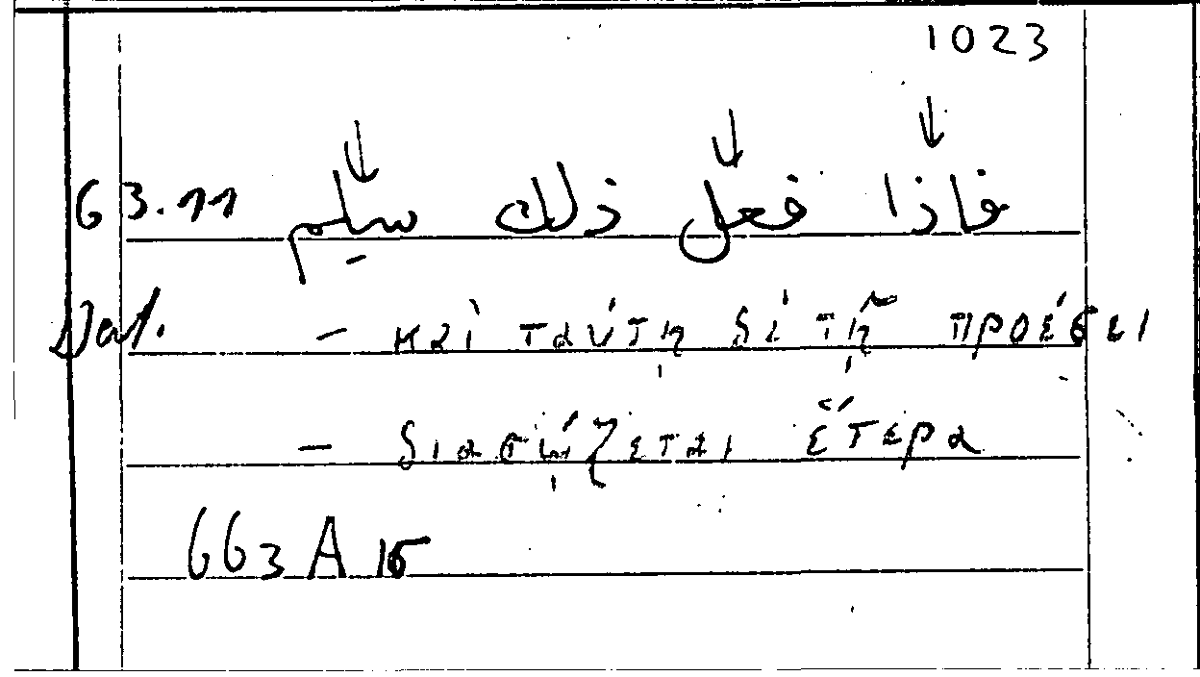 1023
63.11 فاذا فعل ذلك سلم
Dat. – καὶ ταύτῃ δὲ τῇ προέσει
– διασῴζεται ἕτερα
663 A 15